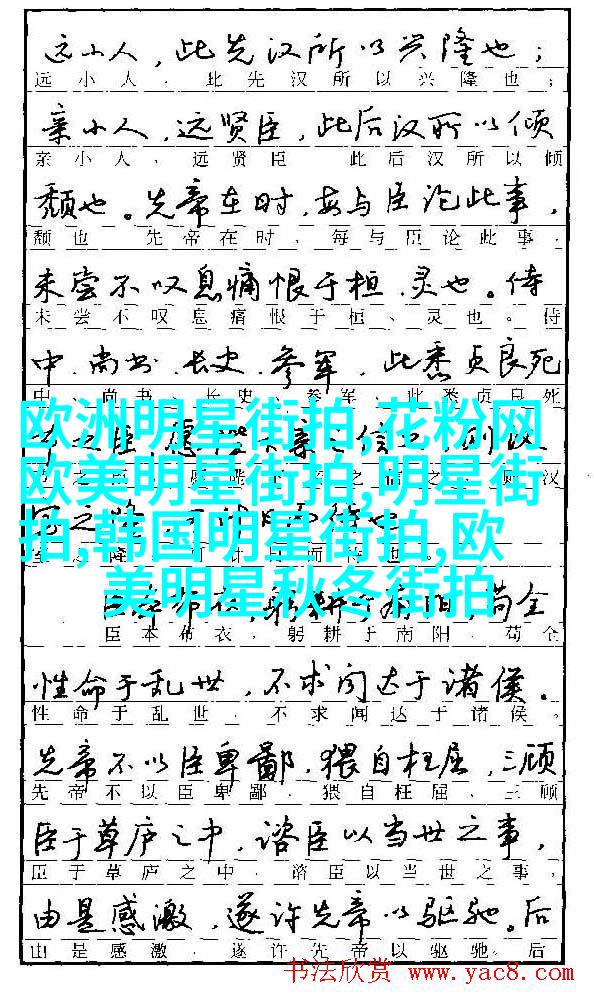 远小人，此先汉所以兴隆也；
远小人，此先汉所以兴隆也；
亲小人，远贤臣，此后汉所以倾
亲小人，远贤臣 此后汉所以倾
颓也。先帝在时，每与臣论此事，
颓也 先帝在时，每与臣论此事，
未尝不叹息痛恨于桓、灵也。侍
未尝不叹息痛恨于桓、灵也。侍
中、尚书、长史、参军，此悉贞良死
中、尚书、长史、参军，此悉贞良死
欧洲明星街拍,花粉网
欧美明星街拍,明星街
拍,韩国明星街拍,欧
美明星秋冬街拍
臣本布衣，躬耕于南阳，苟全
性命于乱世，不求闻达于诸侯。
性命于乱世，不求闻达于诸侯。
先帝不以臣卑鄙，猥自枉屈，三顾
先帝不以臣卑鄙，猥自枉屈，三顾
臣于草庐之中，谘臣以当世之事，
臣于草庐之中，谘臣以当世之事，
由是感激，遂许先帝以驱驰。后
由是感激，遂许先帝以驱驰。后
书法欣赏 www.yac8.com